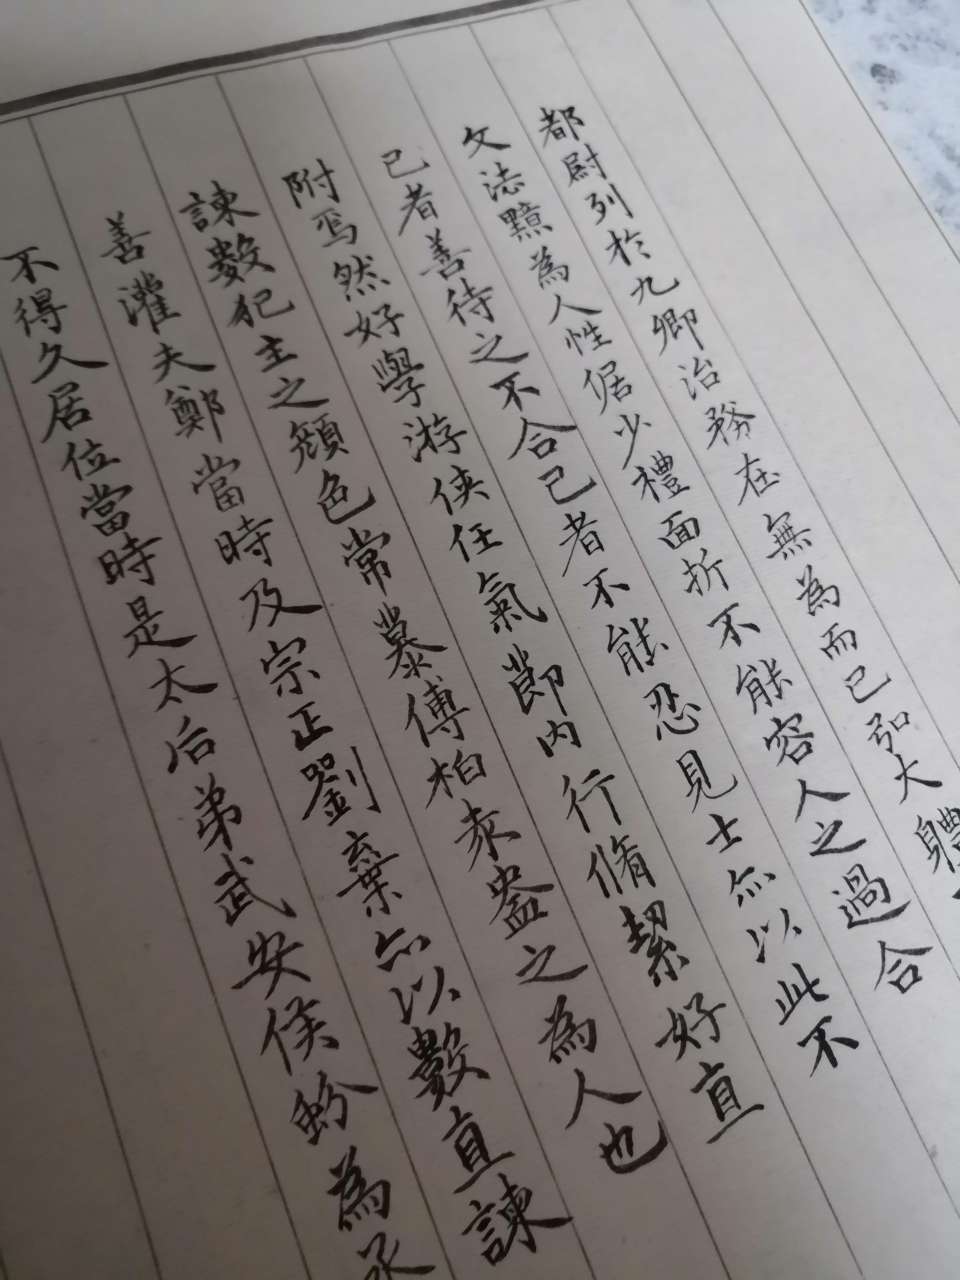 都尉列於九卿治務在無為而已弘大體
文法黯為人性倨少禮面折不能容人之過合
己者善待之不合己者不能忍見士亦以此不
附焉然好學游俠任氣節內行脩絜好直
諫數犯主之顏色常慕傅柏袁盎之為人也
善灌夫鄭當時及宗正劉棄亦以數直諫
不得久居位當時是太后弟武安侯蚡為丞